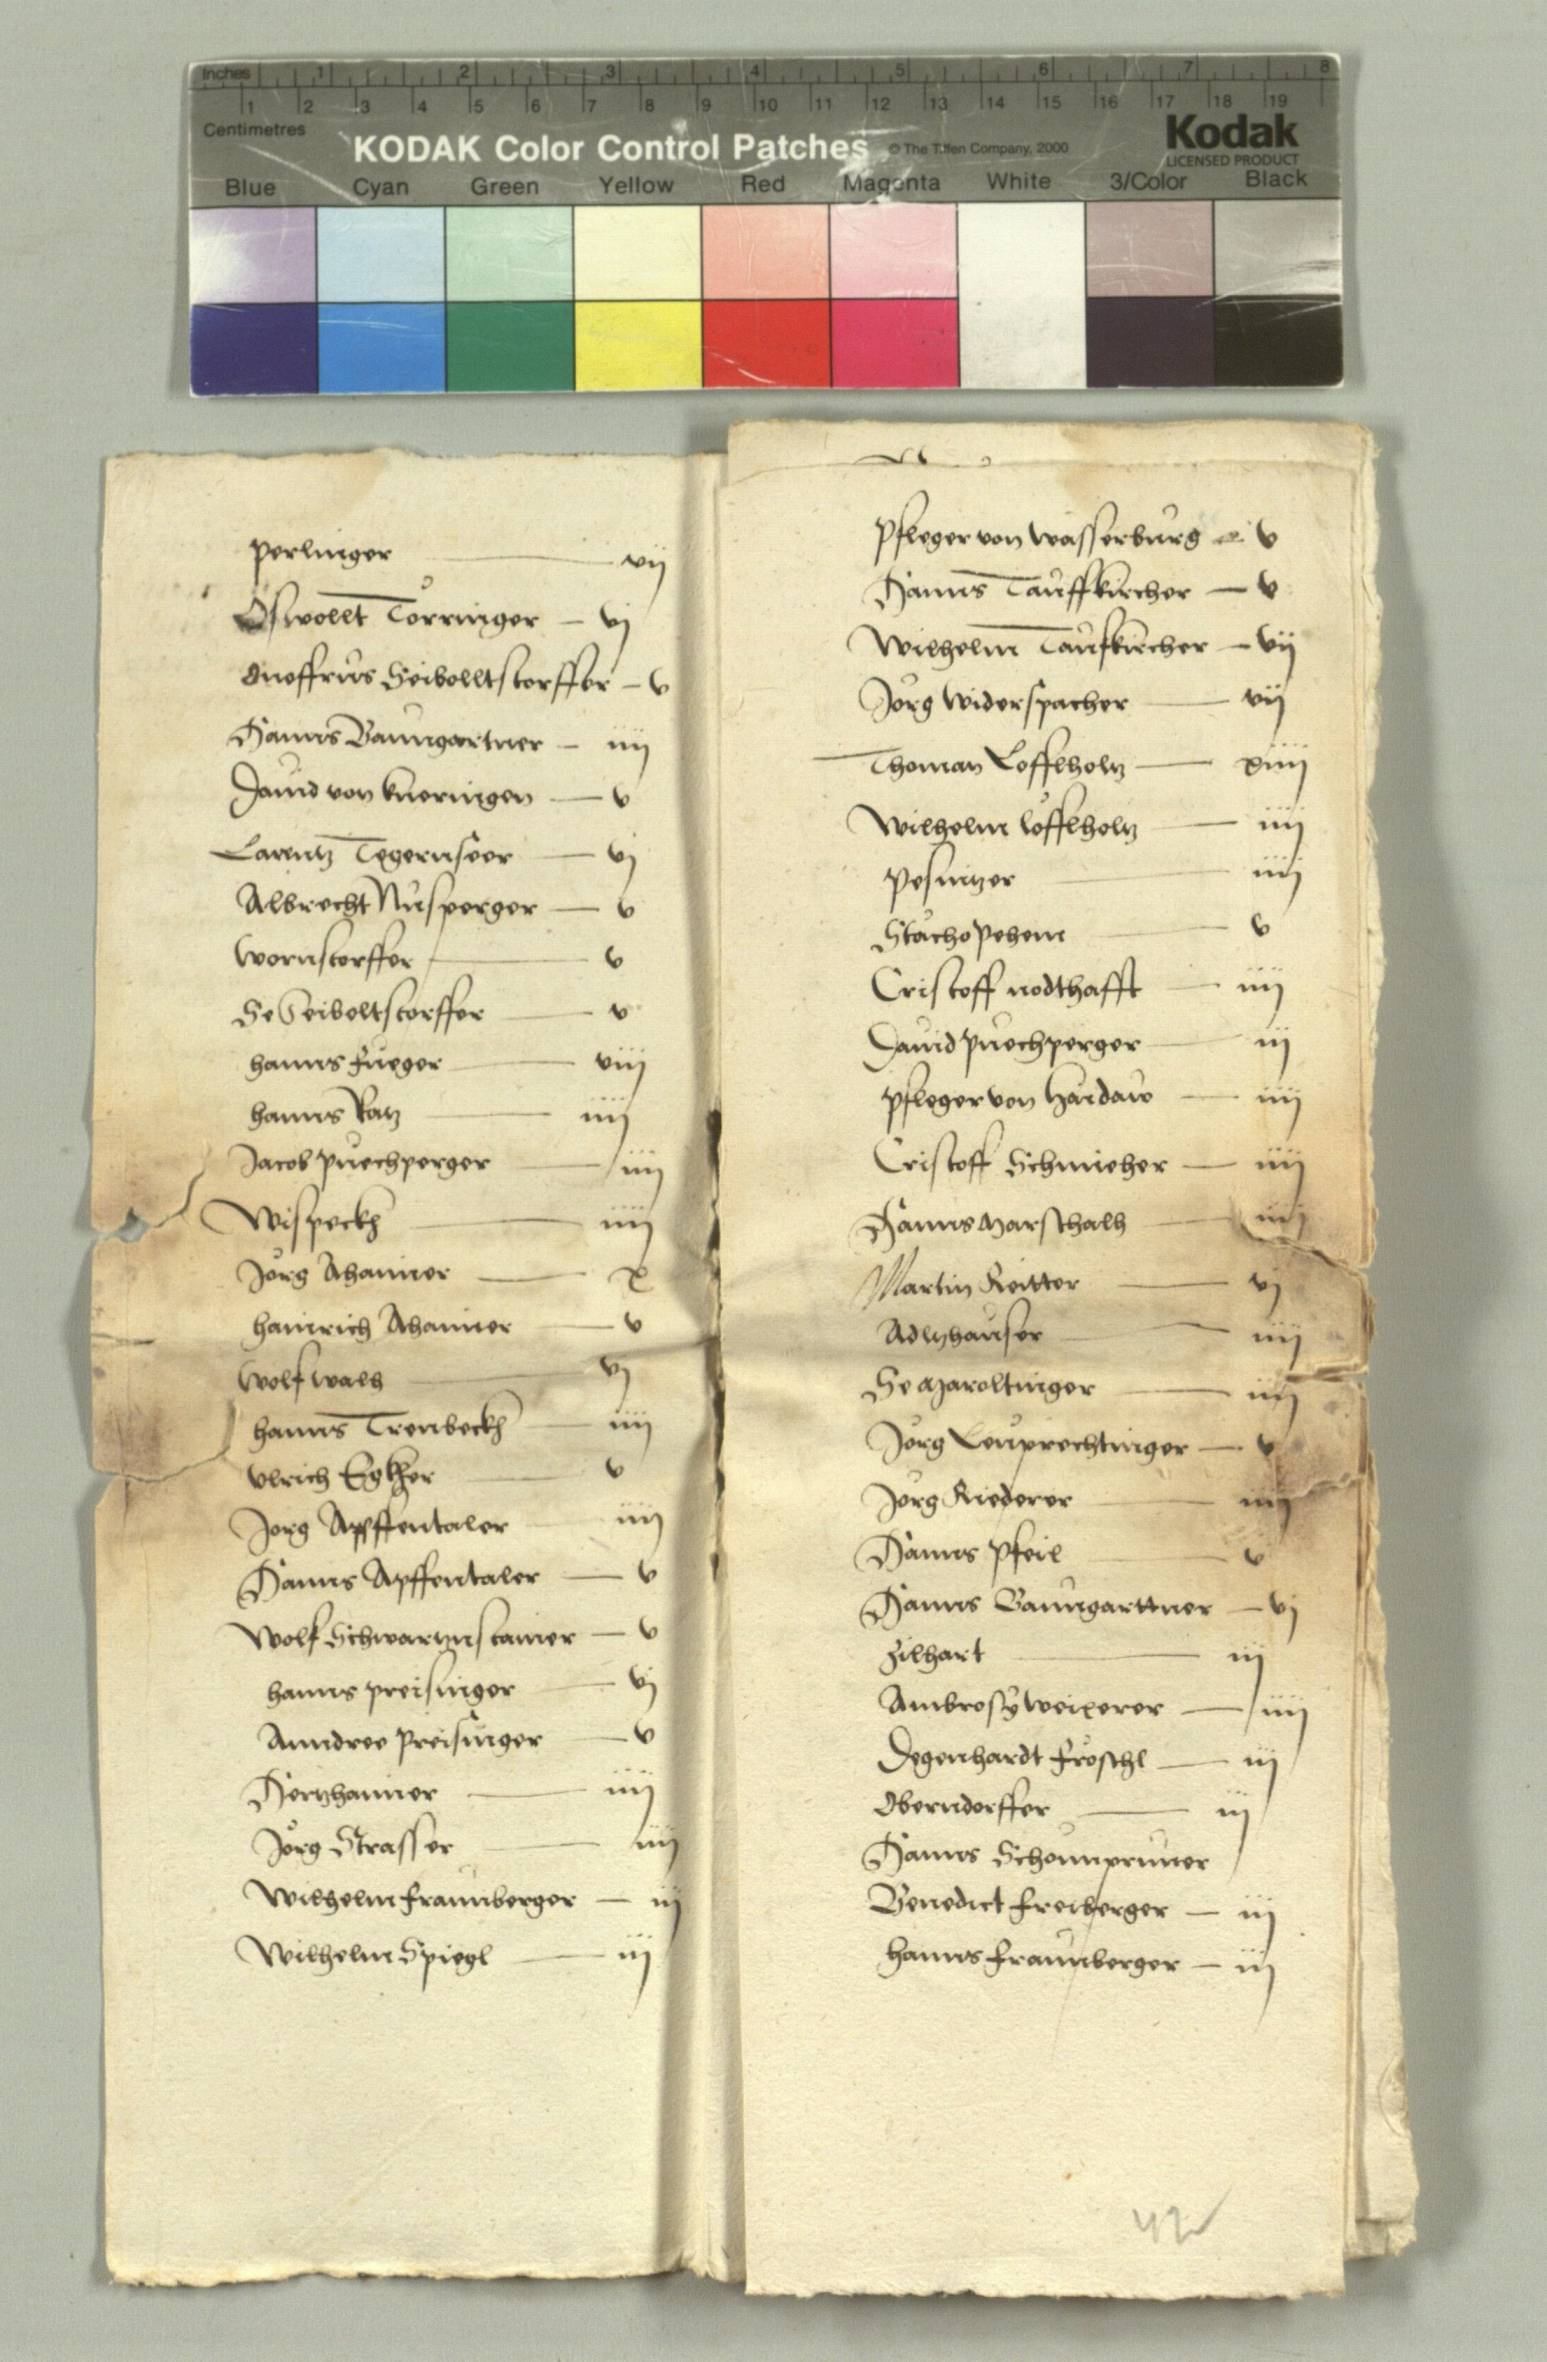 Inches 1 2 3 4 5 6 7 8
1 2 3 4 5 6 7 8 9 10 11 12 13 14 15 16 17 18 19
Centimetres
KODAK Color Control Patches © The Tiffen Company, 2000 Kodak
LICENSED PRODUCT
Blue Cyan Green Yellow Red Magenta White 3/Color Black
perlinger — vij
Oswollt Törringer — vj
Oneffrus Seibolltstorffer — v
Hanns Baumgartner — iiij
Dauid von kneringen — v
Larentz Tegernseer — vj
Albrecht Nusperger — v
wornstorffer — v
Se Seiboltstorffer — v
hanns fueger — viij
hanns Ratz — iiij
Jacob puechperger — iiij
Wispeckh — iiij
Jorg Ahaimer — x
hainrich Ahaimer — v
wolf walh — vj
hanns Trenbeckh — iiij
vlrich Egkher — v
Jorg Apffentaler — iiij
Hanns Apffentaler — v
Wolf Schwartznstainer — v
hanns preisinger — vj
Anndree preisinger — v
Hertzhaimer — iiij
Jörg Strasser — iiij
Wilhelm fraunberger — iij
Wilhelm Spiegl — iij
pfleger von wasserburg — v
Hanns Tauffkircher — v
Wilhelm Taufkircher — vij
Jörg widerspacher — vij
Thoman Löffelholtz — xiiij
Wilhelm löffelholtz — iiij
pesnitzer — iiij
Stacho pehem — v
Cristoff nodthafft — iiij
Dauid puechperger — iij
pfleger von haidaw — iiij
Cristoff Schmieher — iiij
Hanns marschalh — iiij
Martin Reitter — vj
Adltzhauser — iiij
Se maroltinger — iiij
Jörg Leuprechtinger — v
Jörg Riederer — iiij
Hanns pfeil — v
Hanns Baumgarttner — vj
zilhart — iij
Ambrosy weixerer — iiij
Degenhardt fröschl — iij
Oberndorffer — iij
Hanns Schonnpruner
Benedict freiberger — iij
hanns fraunberger — iij
42